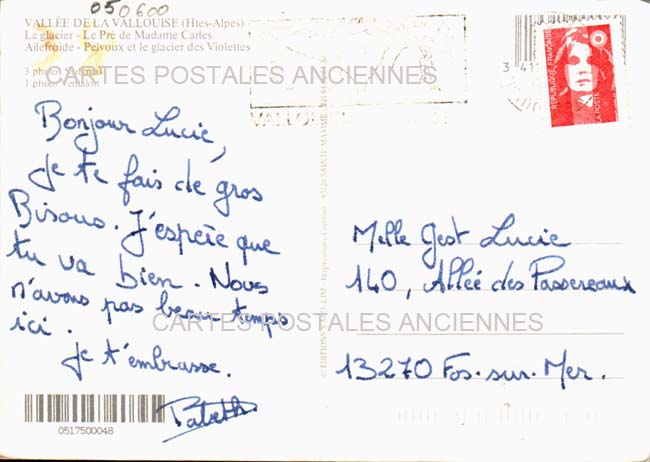 050600
VALLÉE DE LA VALLOUISE (Htes-Alpes)
Le glacier - Le Pré de Madame Carles
Ailefroide - Pelvoux et le glacier des Violettes
3 photos
1 photo
CARTES POSTALES ANCIENNES
VALLOUISE
3 41
RÉPUBLIQUE FRANÇAISE
LA POSTE
Bonjour Lucie,
Je te fais de gros
Bisous. J'espère que
tu va bien. Nous
n'avons pas beau temps
ici.
Je t'embrasse.
Melle Gest Lucie
140, Allée des Passereaux
CARTES POSTALES ANCIENNES
13270 Fos-sur-Mer.
0517500048